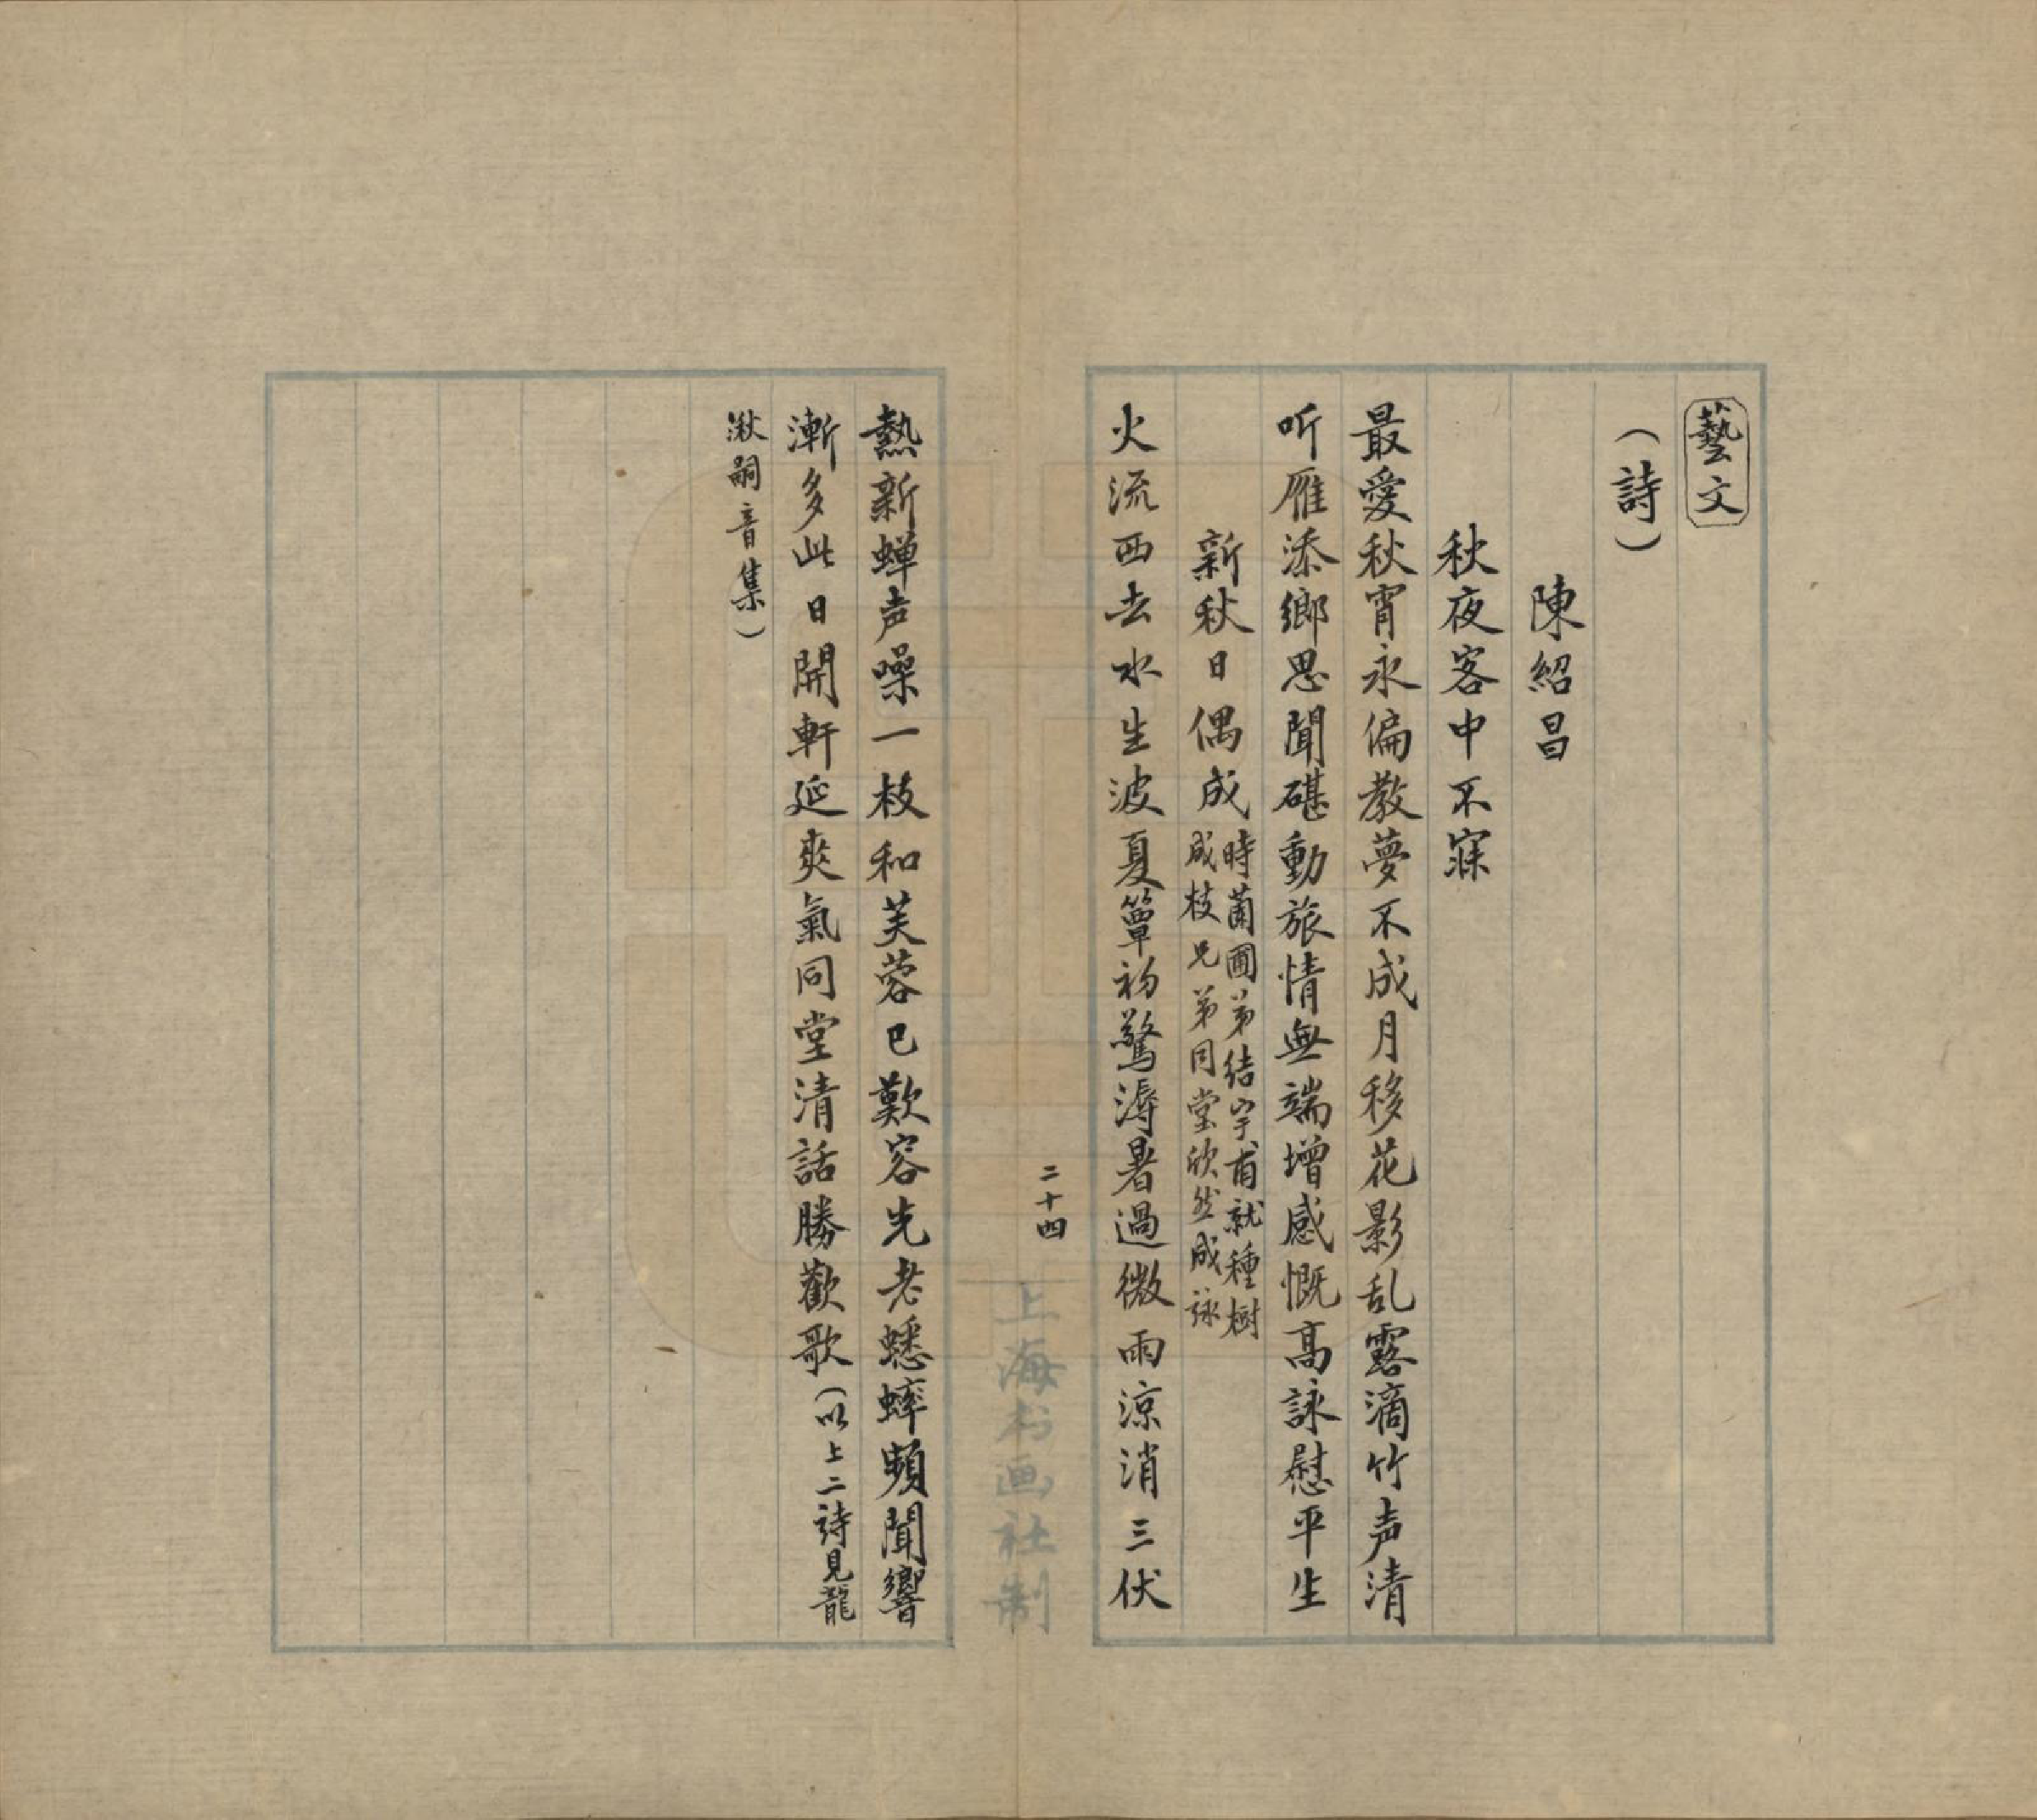 藝文
（詩）
陳紹昌
秋夜客中不寐
最愛秋宵永偏教夢不成月移花影乱露滴竹声清
听雁添鄉思聞碪動旅情無端增感慨高詠慰平生
新秋日偶成
時蘭圃弟結宇甫就種樹
成枝兄弟同堂欣然成詠
火流西去水生波夏簟初驚溽暑過微雨涼消三伏
二十四
上海书画社制
熱新蝉声噪一枝和芙蓉已歎容先老蟋蟀頻聞響
漸多此日開軒延爽氣同堂清話勝歡歌（以上二詩見龍
湫嗣音集）